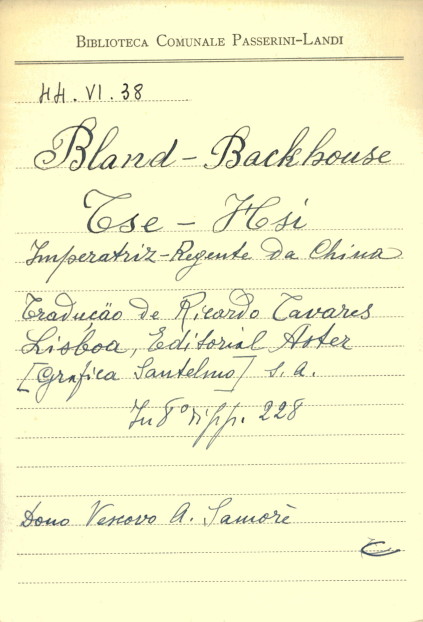 BIBLIOTECA COMUNALE PASSERINI-LANDI
HH. VI. 38
Bland - Backhouse
Tse - Hsi
Imperatriz-Regente da China
Tradução de Ricardo Tavares
Lisboa, Editorial Aster
[Grafica Santelmo] s. a.
In 8° pp. 228
Dono Vescovo A. Samorè